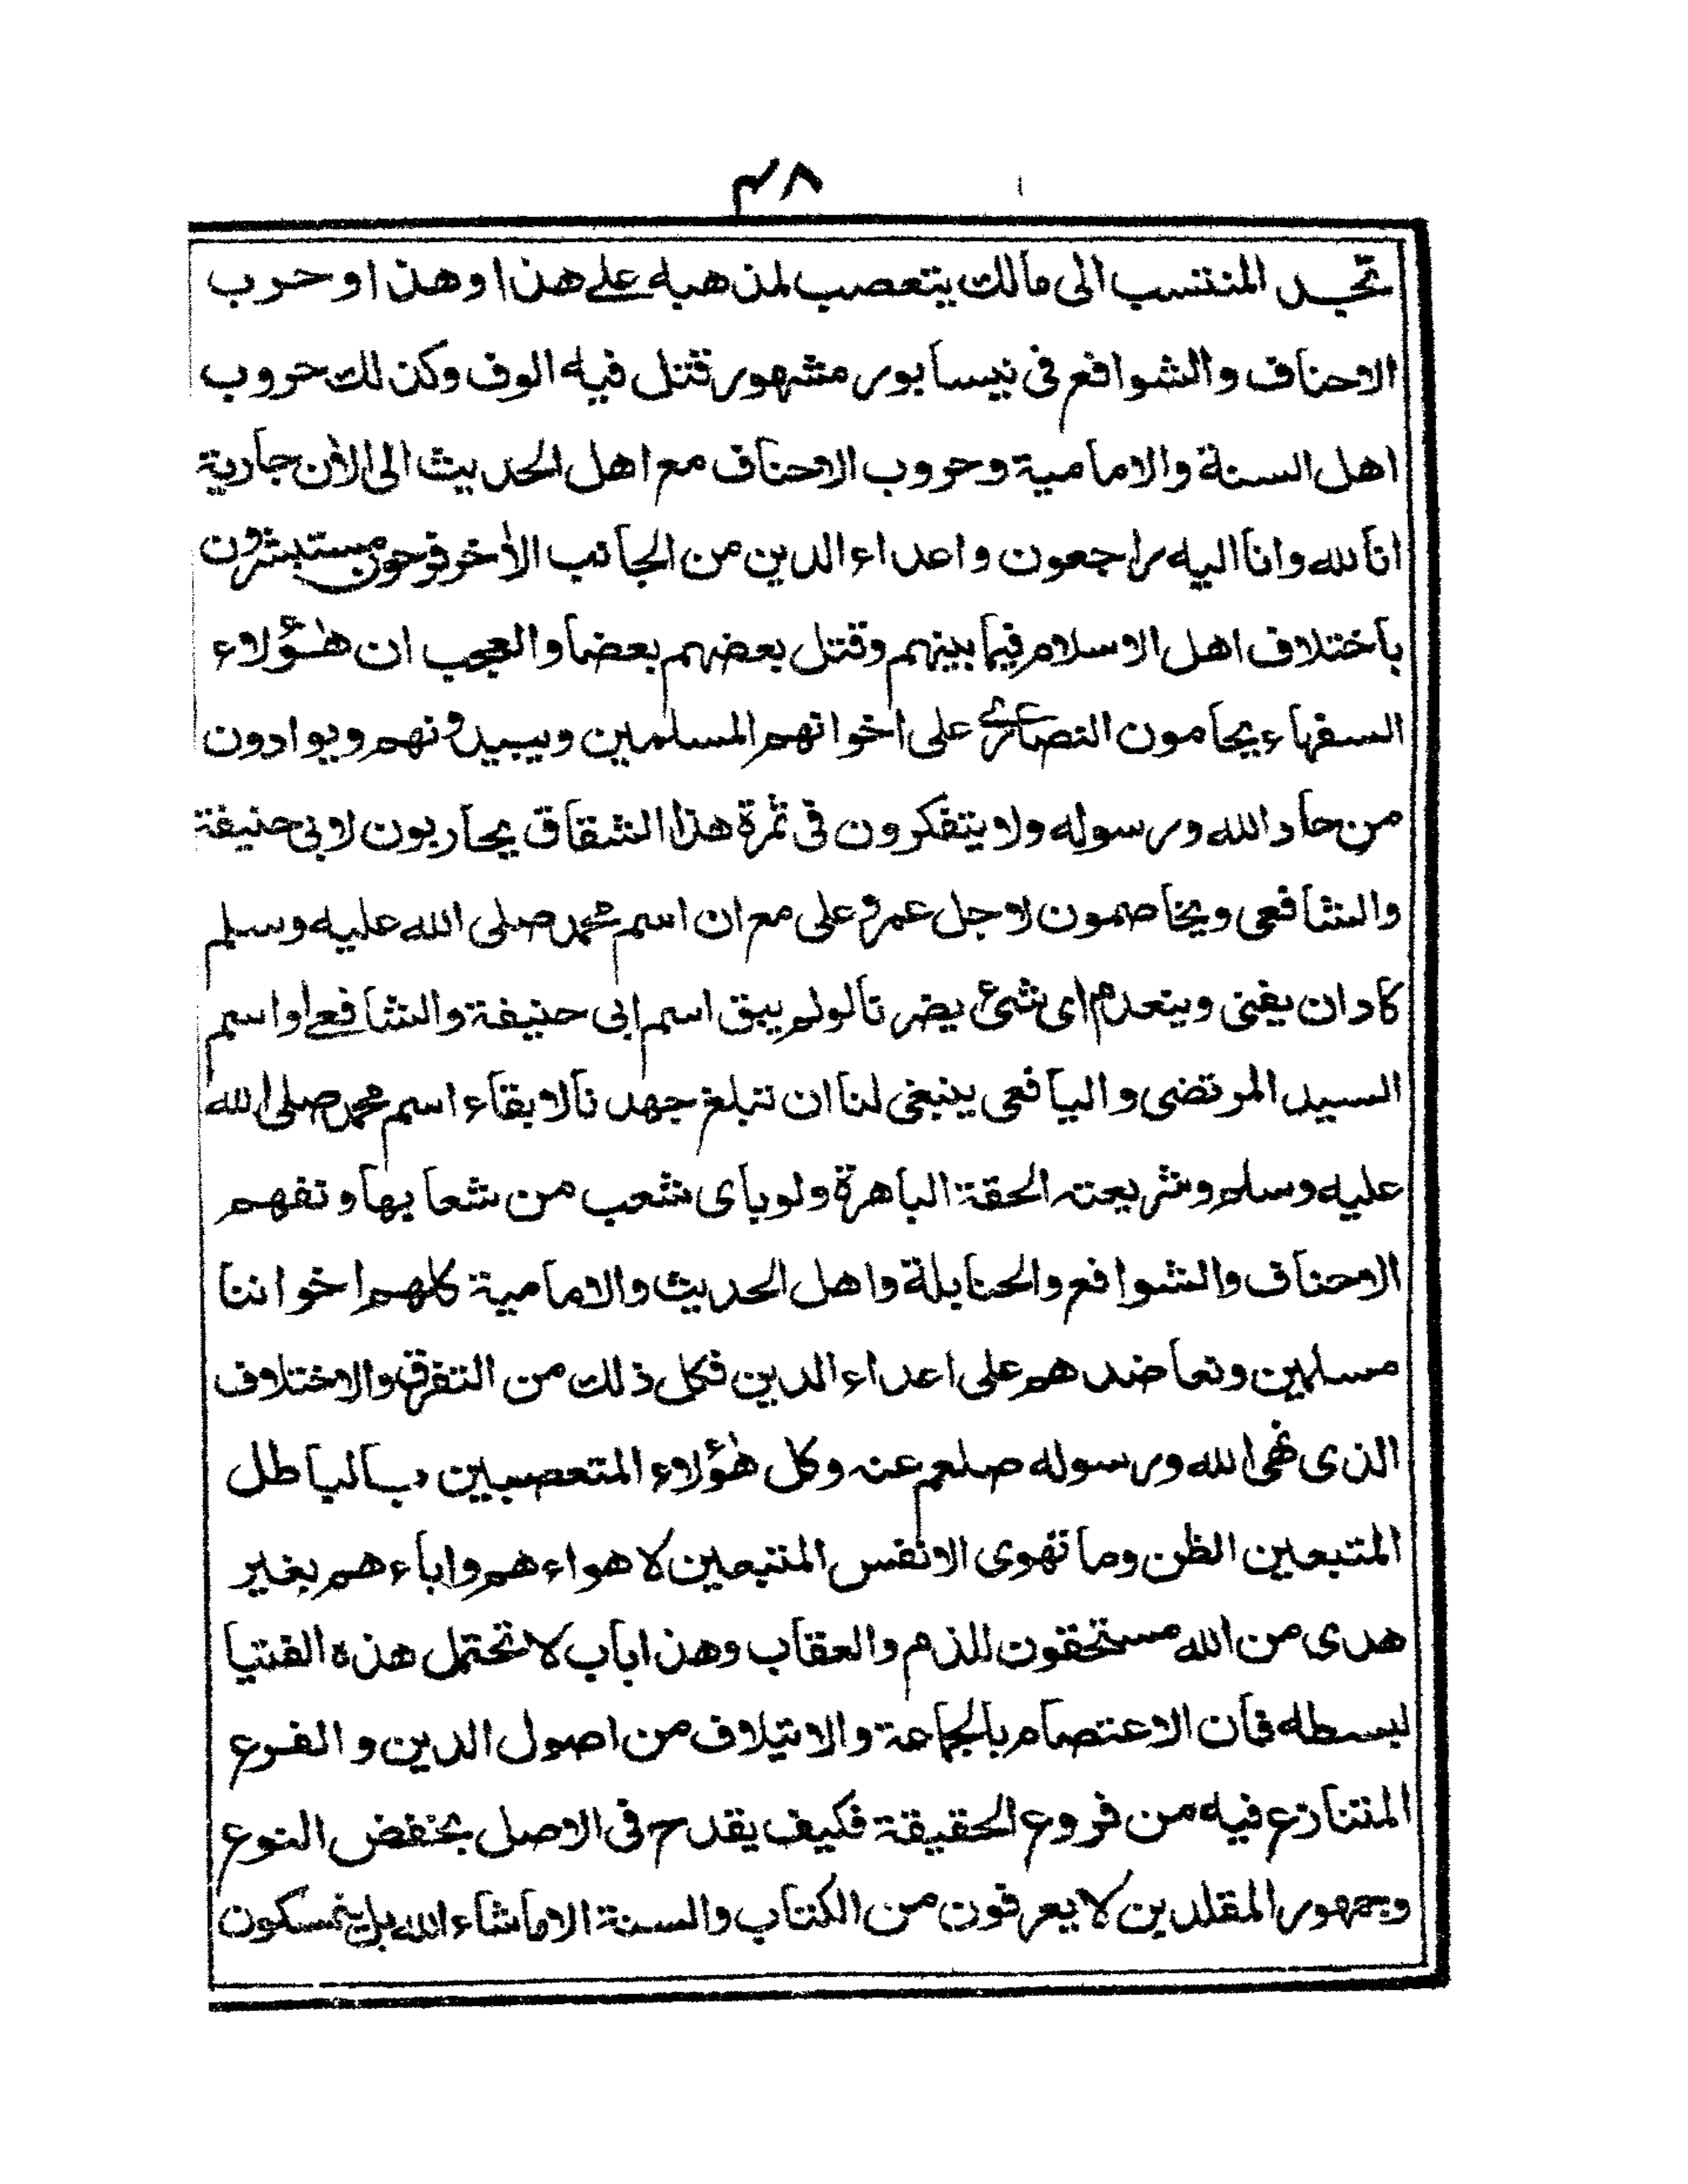 ٤٨
تجد المنتسب الى مالك يتعصب لمذهبه على هذا وهذا وحرب
الاحناف والشوافع فى نيسابور مشهور قتل فيه الوف وكذلك حروب
اهل السنة والامامية وحروب الاحناف مع اهل الحديث الى الأن جارية
انا لله وانا اليه راجعون واعداء الدين من الجانب الأخر فرحون مستبشرون
باختلاف اهل الاسلام فيما بينهم وقتل بعضهم بعضا والعجب ان هٰؤلاء
السفهاء يحامون النصارے على اخوانهم المسلمين ويبيدونهم ويوادون
من حاد الله ورسوله ولا يتفكرون فى ثمرة هذا الشقاق يحاربون لابى حنيفة
والشافعى ويخاصمون لاجل عمرو على مع ان اسم محمد صلى الله عليه وسلم
كاد ان يفنى وينعدم اى شئ يضرنا لو لم يبق اسم ابى حنيفة والشافعے او اسم
السيد المرتضى واليافعى ينبغى لنا ان تبلغ جهدنا لابقاء اسم محمد صلى الله
عليه وسلم وشريعته الحقة الباهرة ولو باى شعب من شعابها ونفهم
الاحناف والشوافع والحنابلة واهل الحديث والامامية كلهم اخواننا
مسلمين ونعاضدهم على اعداء الدين فكل ذلك من التفرق والاختلاف
الذى نهى الله ورسوله صلعم عنه وكل هٰؤلاء المتعصبين بالباطل
المتبعين الظن وما تهوى الانفس المتبعين لاهواءهم واباءهم بغير
هدى من الله مستحقون للذم والعقاب وهذا باب لا تحتمل هذه الفتيا
لبسطه فان الاعتصام بالجماعة والايتلاف من اصول الدين والفرع
المتنازع فيه من فروع الحقيقة فكيف يقدح فى الاصل بخفض النوع
وجمهور المقلدين لا يعرفون من الكتاب والسنة الا ماشاء الله بل يتمسكون